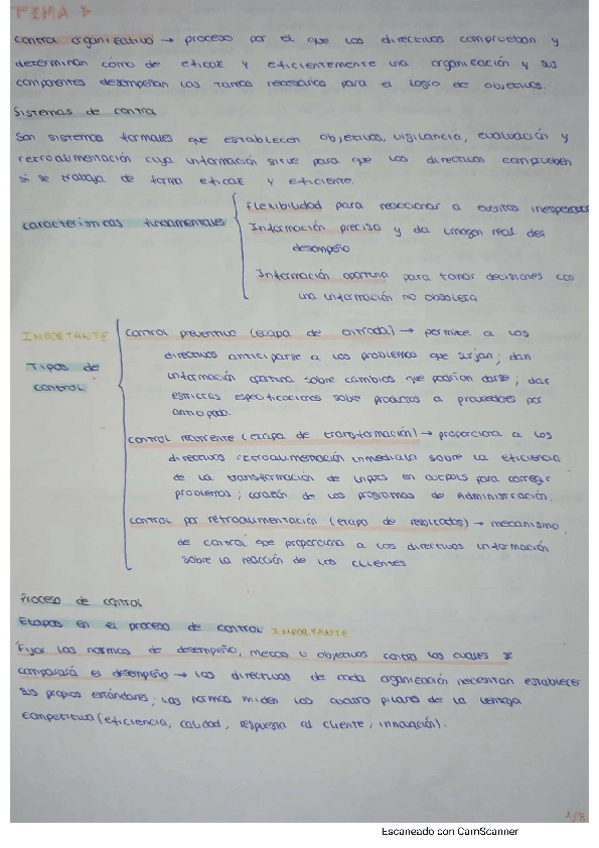 TEMA 8
Control organizativo → proceso por el que los directivos comprueban y
determinan cómo de eficaz y eficientemente una organización y sus
componentes desempeñan las tareas necesarias para el logro de objetivos.
Sistemas de control
Son sistemas formales que establecen objetivos, vigilancia, evaluación y
retroalimentación cuya información sirve para que los directivos comprueben
si se trabaja de forma eficaz y eficiente.
Flexibilidad para reaccionar a eventos inesperados
características fundamentales
Información precisa y da imagen real del
desempeño
Información oportuna para tomar decisiones con
una información no obsoleta
IMPORTANTE
Tipos de
control
control preventivo (etapa de entrada) → permite a los
directivos anticiparse a los problemas que surjan; dan
información oportuna sobre cambios que podrían darse; dar
estrictas especificaciones sobre productos a proveedores por
anticipado.
control recurrente (etapa de transformación) → proporciona a los
directivos retroalimentación inmediata sobre la eficiencia
de la transformación de inputs en outputs para corregir
problemas; corazón de los programas de Administración.
control por retroalimentación (etapa de resultados) → mecanismo
de control que proporciona a los directivos información
sobre la reacción de los clientes
Proceso de control
Etapas en el proceso de control IMPORTANTE
Fijar las normas de desempeño, metas u objetivos contra los cuales se
comparará el desempeño → los directivos de cada organización necesitan establecer
sus propios estándares; las normas miden los cuatro pilares de la ventaja
competitiva (eficiencia, calidad, respuesta al cliente, innovación).
1/8
Escaneado con CamScanner